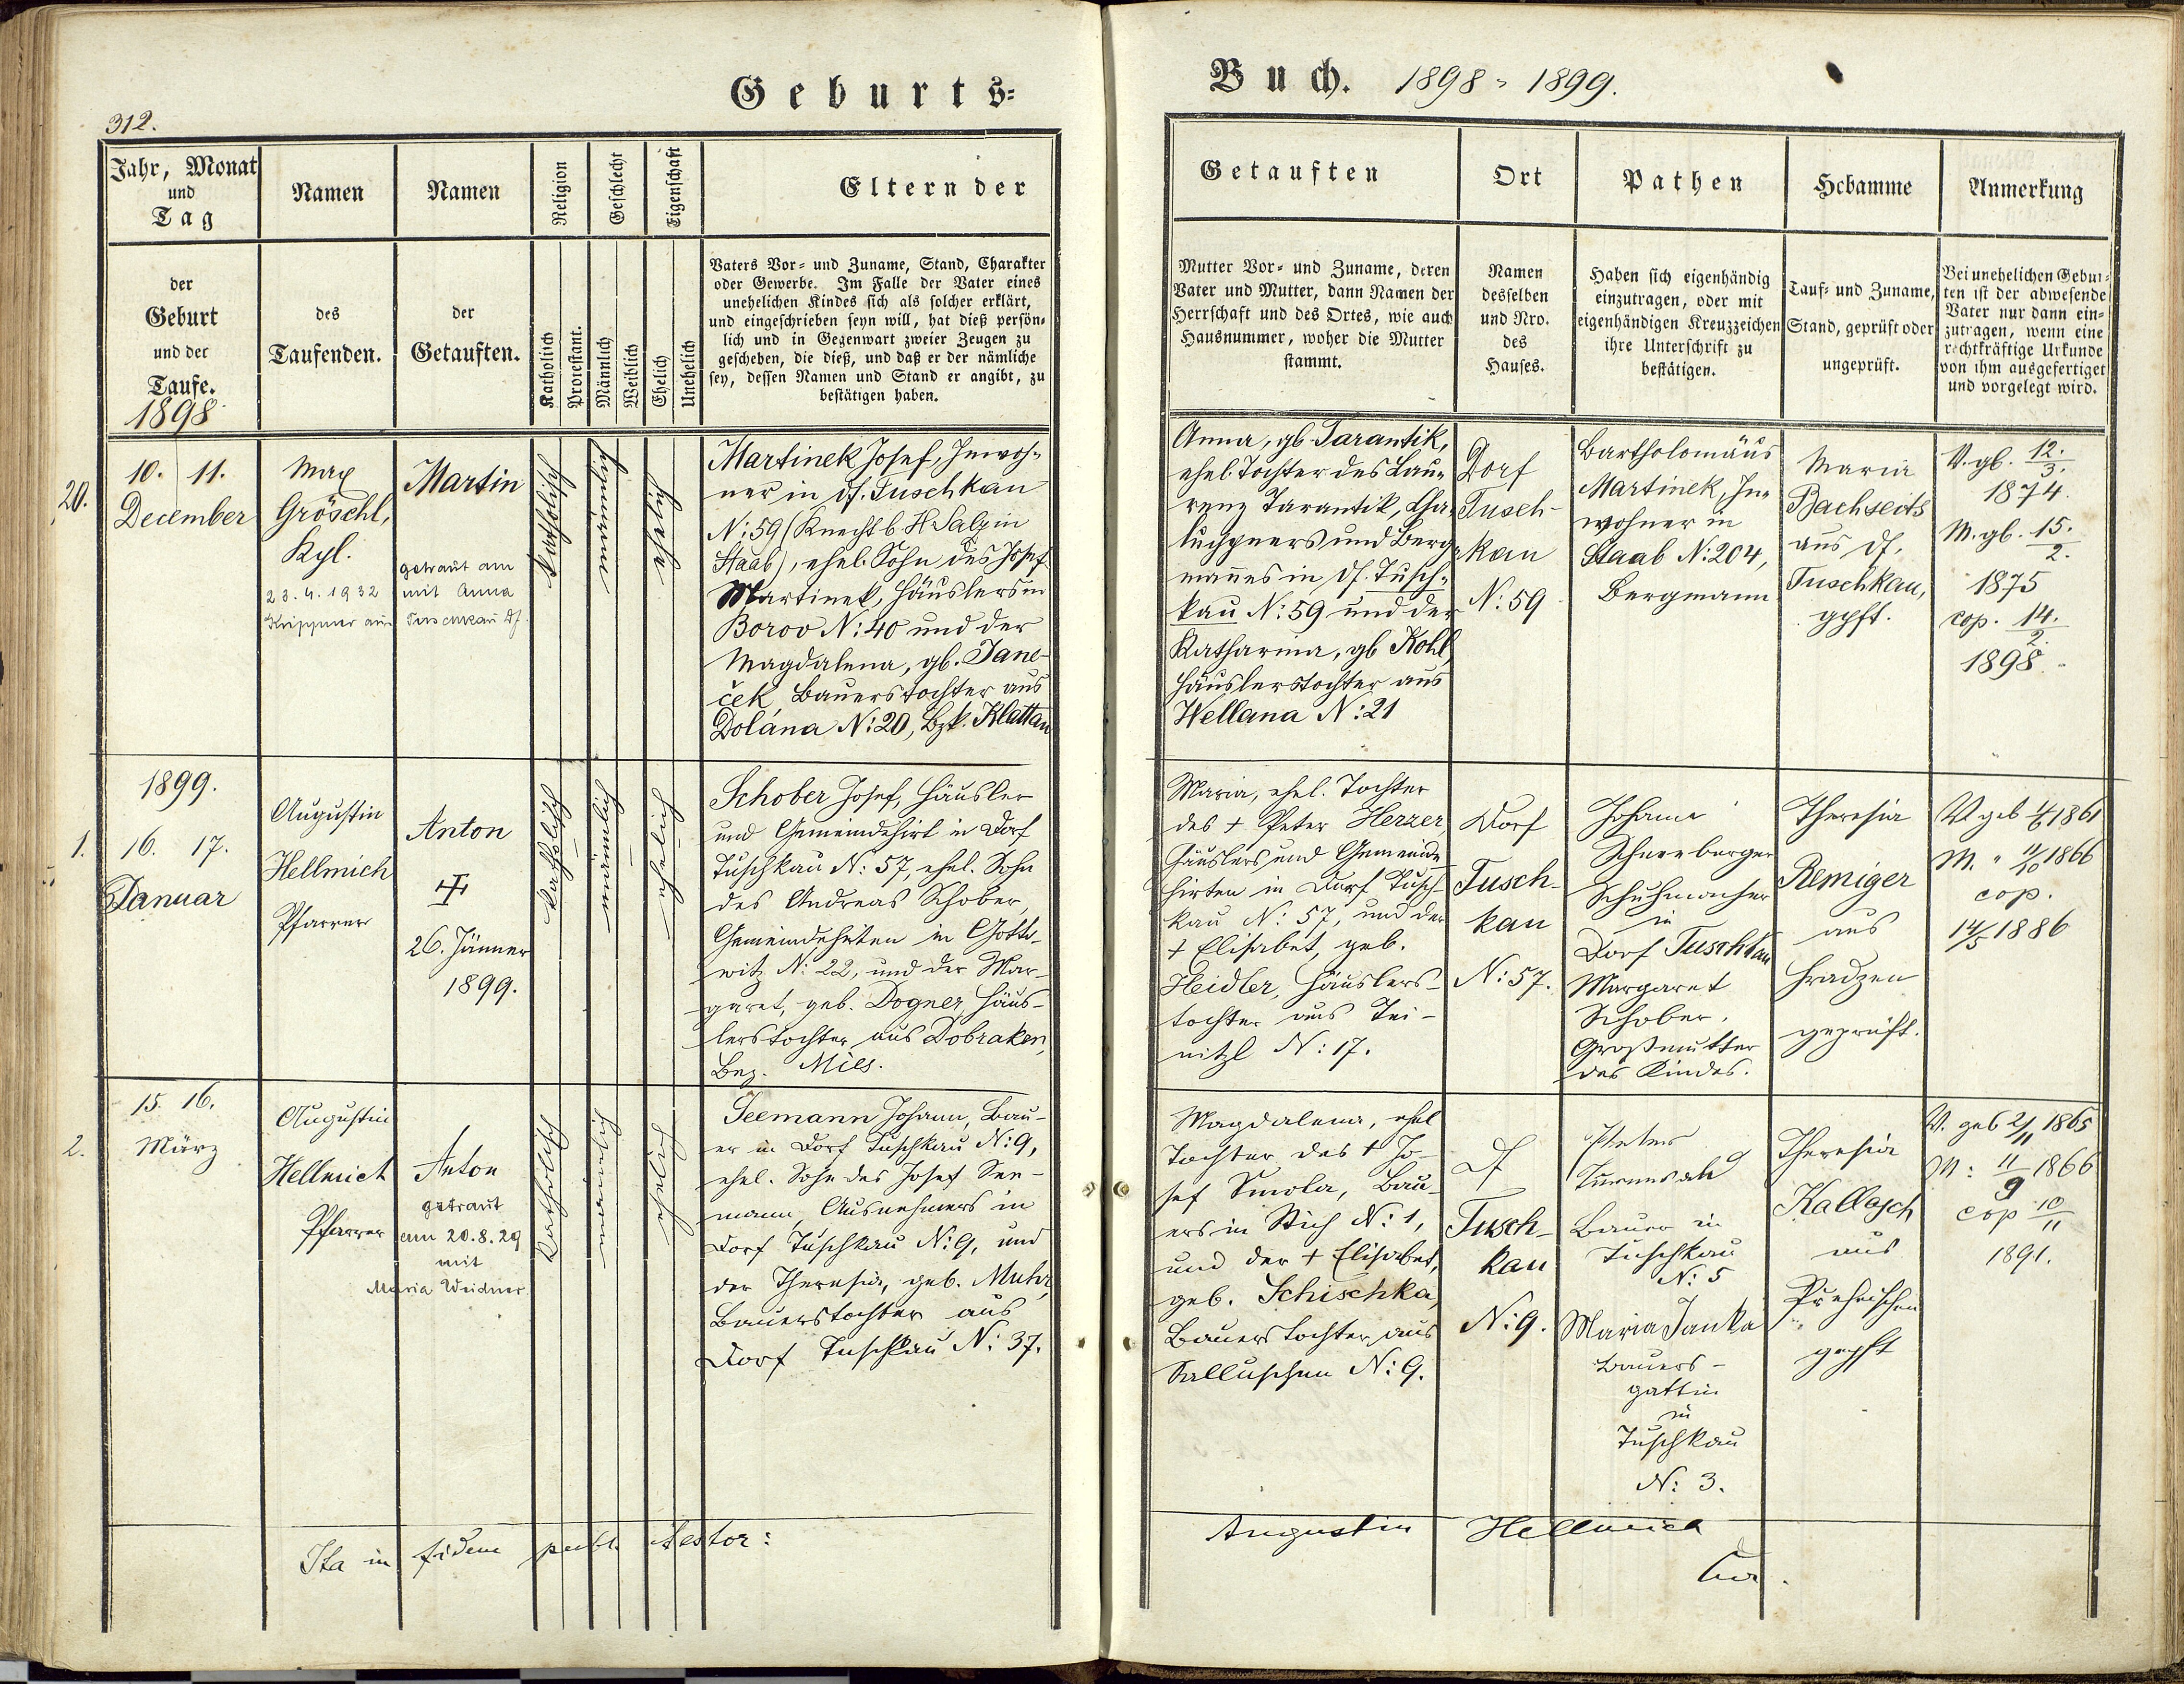 Geburts-
Buch. 1898 - 1899.
312.
Jahr, Monat
und
Tag
Namen
Namen
Religion
Geschlecht
Eigenschaft
Eltern der
Getauften
Ort
Pathen
Hebamme
Anmerkung
der
Geburt
und der
Taufe.
1898
des
Taufenden.
der
Getauften.
Katholisch
Protestant.
Männlich
Weiblich
Ehelich
Unehelich
Vaters Vor- und Zuname, Stand, Charakter
oder Gewerbe. Im Falle der Vater eines
unehelichen Kindes sich als solcher erklärt,
und eingeschrieben seyn will, hat dieß persön-
lich und in Gegenwart zweier Zeugen zu
geschehen, die dieß, und daß er der nämliche
sey, dessen Namen und Stand er angibt, zu
bestätigen haben.
Mutter Vor- und Zuname, deren
Vater und Mutter, dann Namen der
Herrschaft und des Ortes, wie auch
Hausnummer, woher die Mutter
stammt.
Namen
desselben
und Nro.
des
Hauses.
Haben sich eigenhändig
einzutragen, oder mit
eigenhändigen Kreuzzeichen
ihre Unterschrift zu
bestätigen.
Tauf- und Zuname,
Stand, geprüft oder
ungeprüft.
Bei unehelichen Gebur-
ten ist der abwesende
Vater nur dann ein-
zutragen, wenn eine
rechtkräftige Urkunde
von ihm ausgefertiget
und vorgelegt wird.
20.
10. 11.
December
Max
Gröschl,
Kpl.
Martin
getraut am
23.4.1932 mit Anna
Krippner aus Tuschkau Df.
katholisch
männlich
ehelich
Martinek Josef, Inwoh-
ner in Df. Tuschkau
N: 59 (Knecht b. H. Salz in
Staab), ehel. Sohn des Josef
Martinek, Häuslers in
Borov N: 40 und der
Magdalena, gb. Jane-
ček Bauerstochter aus
Dolána N: 20, Bzk. Klattau
Anna, gb. Tarantik,
ehel. Tochter des Lau-
renz Tarantik, Cha-
luppners und Berg-
mannes in Df. Tusch-
kau N: 59 und der
Katharina, gb Kohl,
Häuslerstochter aus
Wellana N: 21
Dorf
Tusch-
kau
N: 59
Bartholomäus
Martinek, In-
wohner in
Staab N: 204,
Bergmann
Maria
Bachseits
aus Df.
Tuschkau,
gpft.
V. gb. 12./3.
1874.
M. gb. 15./2.
1875
cop. 14./2.
1898
1899.
1.
16. 17.
Januar
Augustin
Hellmich
Pfarrer
Anton
26. Jänner
1899.
katholisch
männlich
ehelich
Schober Josef, Häusler
und Gemeindehirt in Dorf
Tuschkau N: 57, ehel. Sohn
des Andreas Schober,
Gemeindehirten in Gotto-
witz N: 22, und der Mar-
garet, geb. Dogner, Häus-
lerstochter aus Dobraken,
Bez. Mies.
Maria, ehel. Tochter
des + Peter Herzer,
Häuslers und Gemeinde-
hirten in Dorf Tusch-
kau N: 57, und der
+ Elisabet, geb.
Heidler, Häuslers-
tochter aus Tei-
nitzl N: 17.
Dorf
Tusch-
kau
N: 57.
Johann
Schneeberger
Schuhmacher
in
Dorf Tuschkau
Margaret
Schober,
Großmutter
des Kindes.
Theresia
Remiger
aus
Hradzen
geprüft.
V geb 1861
M. " 11/10 1866
cop.
14/5 1886
2.
15. 16.
März
Augustin
Hellmich
Pfarrer
Anton
getraut
am 20.8.29
mit
Maria Weidner
katholisch
männlich
ehelich
Seemann Johann, Bau-
er in Dorf Tuschkau N: 9,
ehel. Sohn des Josef See-
mann, Ausnehmers in
Dorf Tuschkau N: 9, und
der Theresia, geb. Muhr,
Bauerstochter aus
Dorf Tuschkau N: 37.
Magdalena, ehel
Tochter des + Jo-
sef Smola, Bau-
ers in Stich N: 1,
und der + Elisabet,
geb. Schischka,
Bauerstochter aus
Salluschen N: 9.
Df
Tusch-
kau
N: 9.
Bauer in
Tuschkau
N: 5
Maria Janka
Bauers-
gattin
in
Tuschkau
N: 3.
Theresia
Kallasch
aus
Prehischen
gepft
V. geb 2/11 1865
M: 11/9 1866
cop 10/11
1891.
Ita in fidem publ. testor:
Augustin Hellmich